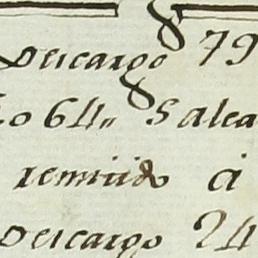 Descargo 79
64,, Salca
remitido á
Descargo 24